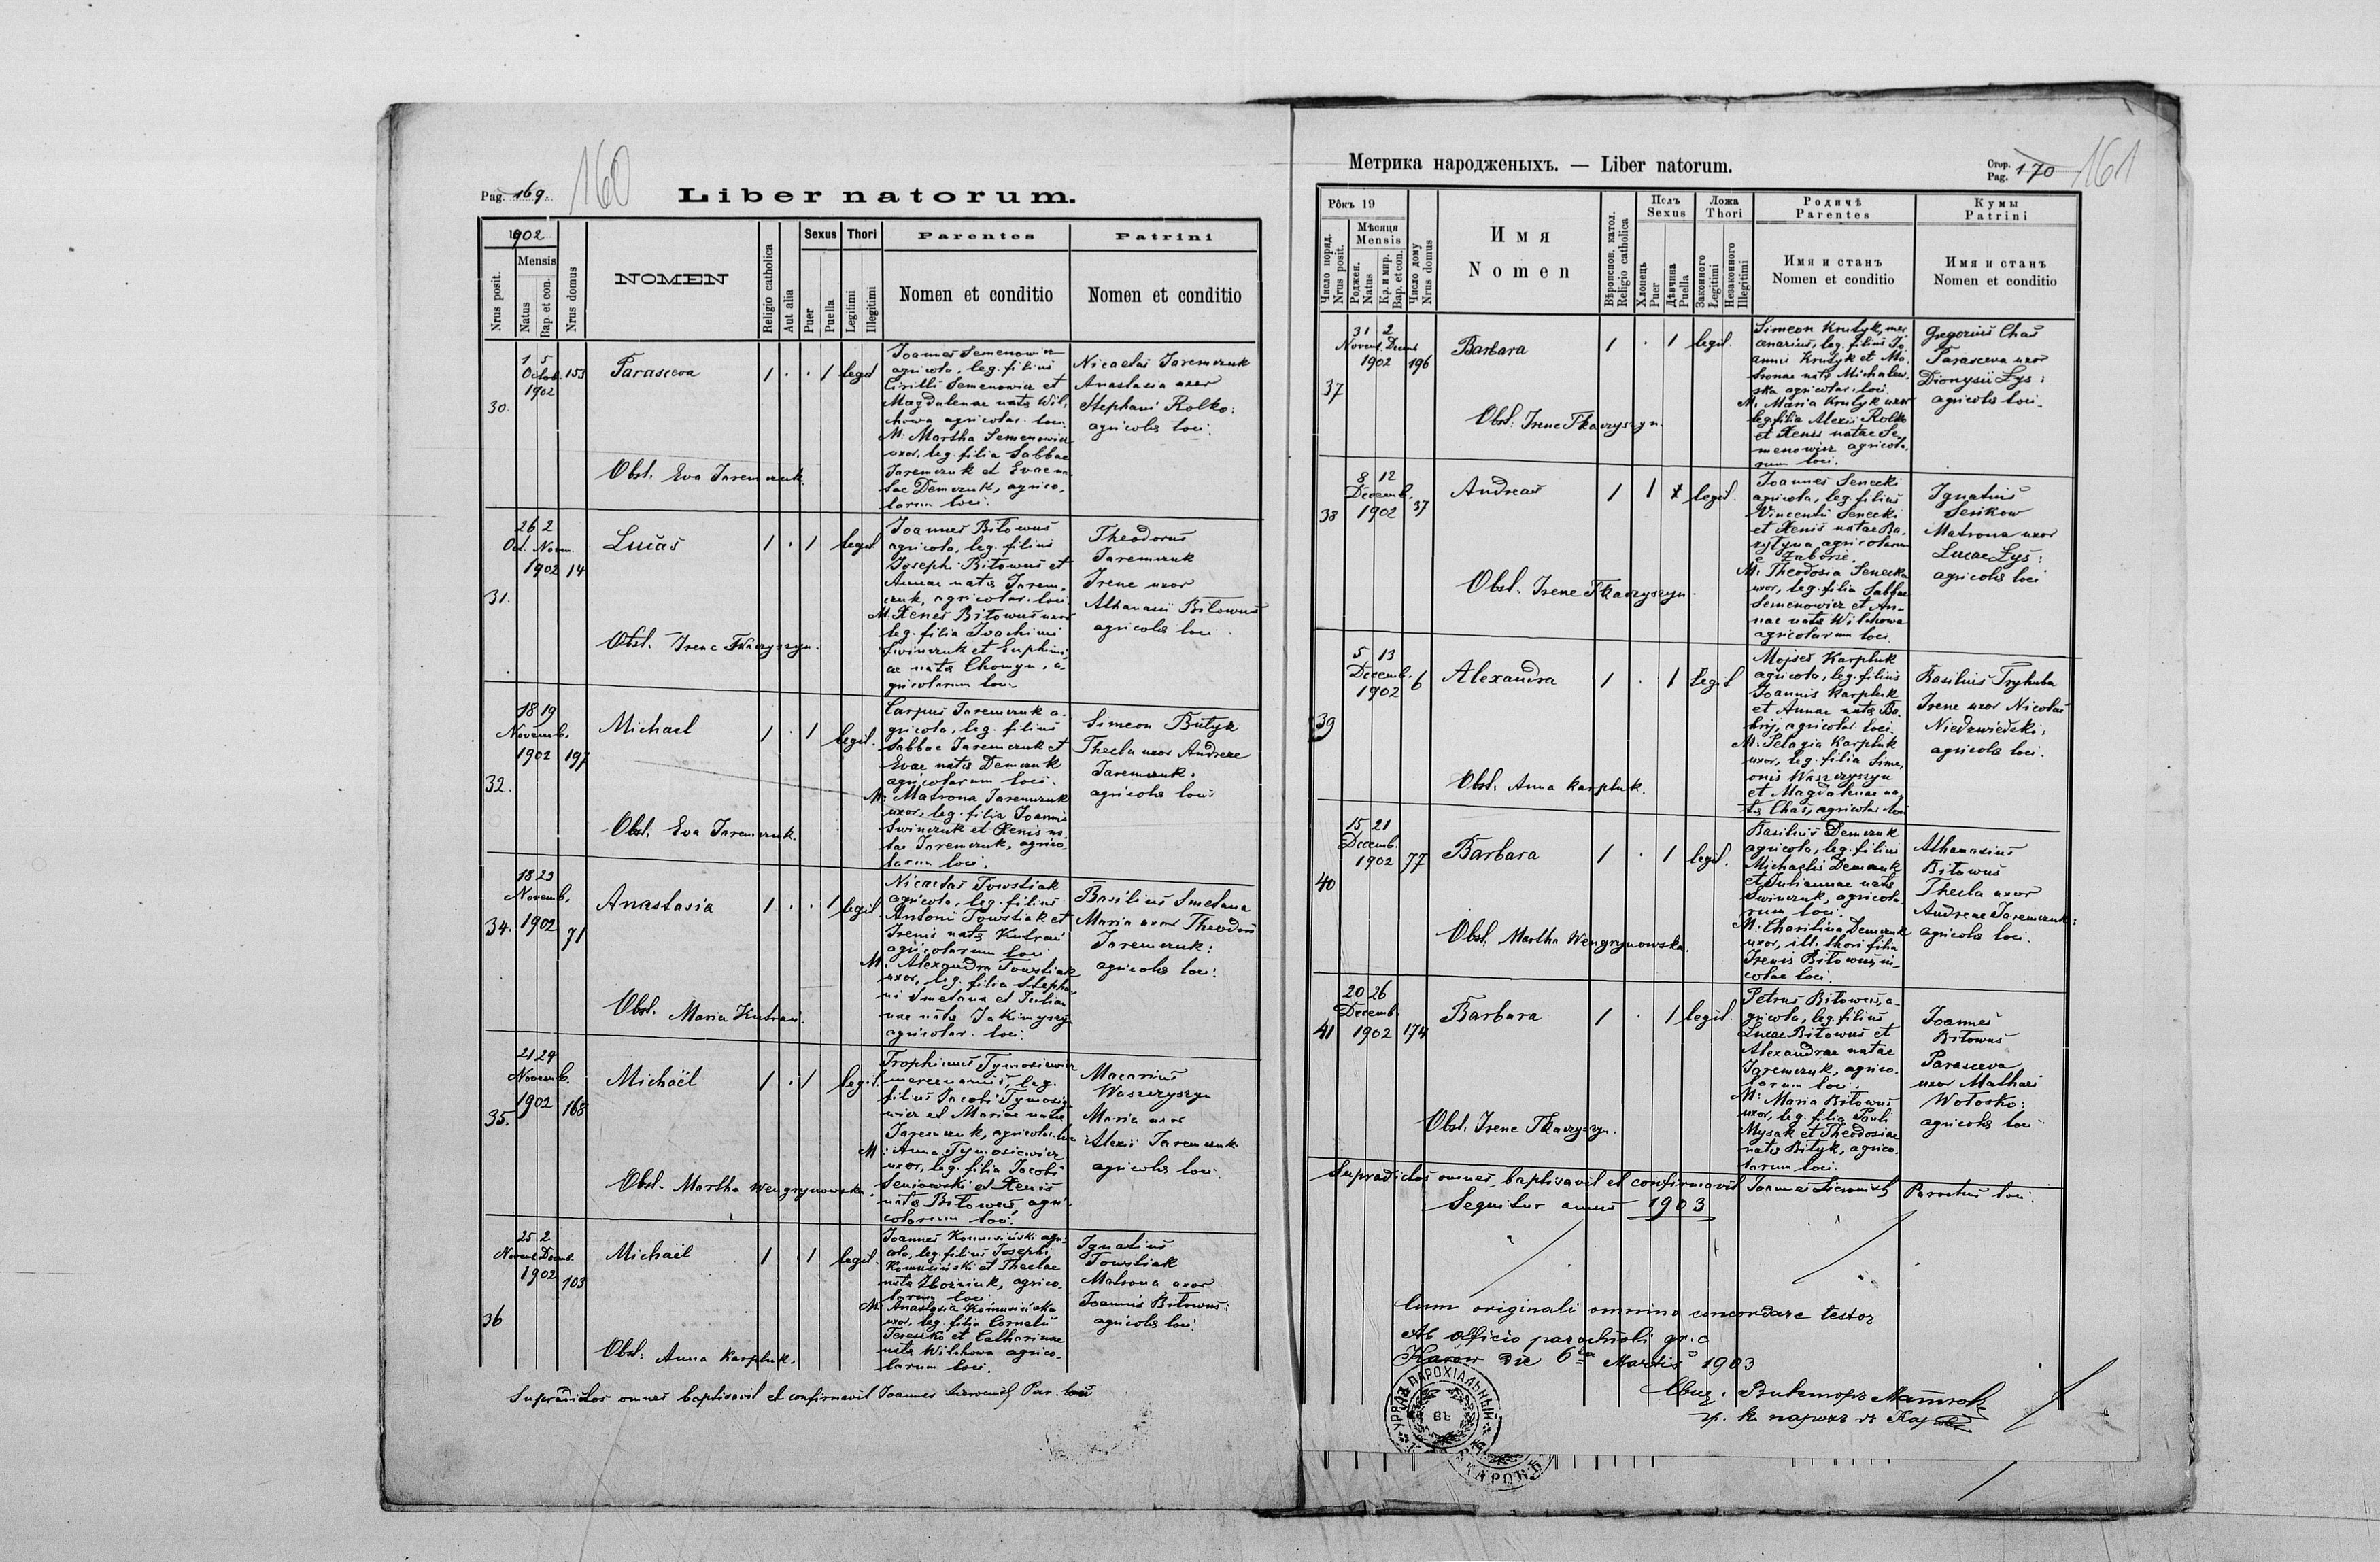 Pag. 169.
160
Liber natorum.
1902
Mensis
Nrus posit.
Natus
Bap. et con.
Nrus domus
NOMEN
Religio catholica
Aut alia
Sexus
Puer
Puella
Thori
Legitimi
Illegitimi
Parentes
Nomen et conditio
Patrini
Nomen et conditio
30.
1 5
Octob.
1902
153
Parasceva
1 . . 1 legit
Joannes Semenowicz
agricola, leg. filius
Cirilli Semenowicz et
Magdalenae nats Wil-
chowa agricolar. loci.
M. Martha Semenowicz
uxor, leg. filia Sabbae
Jaremczuk et Evae na-
tae Demczuk, agrico-
larum loci.
Nicaetas Jaremczuk
Anastasia uxor
Stephani Rolko:
agricolis loci.
Obst. Eva Jaremczuk
31.
26 2
Oct. Novem.
1902
14
Lucas
1 . 1 legit
Joannes Bitowus
agricola, leg. filius
Josephi Bitowus et
Annae nats Jarem-
czuk, agricolar. loci
M. Xenes Bitowus uxor
leg. filia Joachimi
Swinczuk et Euphimi-
ae nats Chomyn, a-
gricolarum loci.
Theodorus
Jaremczuk
Irene uxor
Athanasii Bitowus
agricolis loci.
Obst. Irene Tkaczyszyn.
32.
18 19
Novemb.
1902
197
Michael
1 . 1 legit.
Carpus Jaremczuk a-
gricola, leg. filius
Sabbae Jaremczuk et
Evae nats Demczuk
agricolarum loci.
M. Matrona Jaremczuk
uxor, leg. filia Joannis
Swinczuk et Xenis na-
tae Jaremczuk, agrico-
larum loci.
Simeon Butyk
Thecla uxor Andreae
Jaremczuk:
agricolis loci
Obst. Eva Jaremczuk.
34.
18 23
Novemb.
1902
71
Anastasia
1 . . 1 legit
Nicaetas Towstiak
agricola, leg. filius
Antoni Towstiak et
Irenis nats Kutran
agricolarum loci
M. Alexandra Towstiak
uxor, leg. filia Stepha-
ni Smetana et Julian-
nae nats Jakimyszyn
agricolar. loci.
Basilius Smetana
Maria uxor Theodori
Jaremczuk:
agricolis loci.
Obst. Maria Kutran.
35.
21 24
Novemb.
1902
168
Michaël
1 . 1 legit.
Trophimus Tymosiewicz
mercenarius, leg.
filius Jacobi Tymosie-
wicz et Mariae natae
Jaremczuk, agricolar. loci
M: Anna Tymosiewicz
uxor, leg. filia Jacobi
Seniawski et Xenis
nats Bitowus, agri-
colarum loci.
Macarius
Waszczyszyn
Maria uxor
Alexii Jaremczuk
agricolis loci.
Obst. Martha Wengrynowska.
36
25 2
Novemb. Decemb.
1902
103
Michaël
1 . 1 legit.
Joannes Komusiński agri-
cola, leg. filius Josephi
Komusiński et Theclae
nats agrico-
larum loci.
M. Anastasia Komusińska
uxor, leg. filia Cornelii
Teresko et Catharinae
nats Wilchowa agrico-
larum loci.
Ignatius
Towstiak
Matrona uxor
Joannis Bitowus:
agricolis loci.
Obst. Anna Karpluk.
Supradictos omnes baptisavit et confirmavit Joannes Par. loci
Метрика народженыхъ. — Liber natorum.
Стор.
Pag. 170
161
Рôкъ 19
Мѣсяця
Mensis
Число поряд.
Nrus posit.
Роджен.
Natus
Кр. и мир.
Bap. et con.
Число дому
Nrus domus
Имя
Nomen
Вѣроиспов. катол.
Religio catholica
Полъ
Sexus
Хлопець
Puer
Дѣвчина
Puella
Ложа
Thori
Законного
Legitimi
Незаконного
Illegitimi
Родичѣ
Parentes
Имя и станъ
Nomen et conditio
Кумы
Patrini
Имя и станъ
Nomen et conditio
37
31 2
Novem. Decemb
1902
196
Barbara
1 . 1 legit.
Simeon Krutyk, mer-
cenarius, leg. filius Jo-
annis Krutyk et Ma-
tronae nats Michalew-
ska agricolar. loci.
M. Maria Krutyk uxor
leg. filia Alexii Rolko
et Xenis natae Se-
menowicz agricola-
rum loci.
Gregorius Chas
Parasceva uxor
Dionysii Łys:
agricolis loci.
Obst: Irene Tkaczyszyn.
38
8 12
Decemb.
1902
37
Andreas
1 1 legit.
Joannes Senecki
agricola, leg. filius
Vincentii Senecki
et Xenis natae Ba-
zytyna agricolarum
e Zaborze.
M. Theodosia Senecka
uxor, leg. filia Sabbae
Semenowicz et An-
nae nats Wilchowa
agricolarum loci.
Ignatius
Senkow
Matrona uxor
Lucae Łys:
agricolis loci
Obst. Irene Tkaczyszyn.
39
5 13
Decemb.
1902
6
Alexandra
1 . 1 legit
Mojses Karpluk
agricola, leg. filius
Joannis Karpluk
et Annae nats Ba-
brij, agricolar. loci.
M. Pelagia Karpluk
uxor, leg. filia Sime-
onis Waszczyszyn
et Magdalenae na-
ts Chas, agricolar. loci
Basilius Tryhuba
Irene uxor Nicolai
Niedzwiedski:
agricolis loci.
Obst. Anna Karpluk.
40
15 21
Decemb.
1902
77
Barbara
1 . 1 legit.
Basilius Demczuk
agricola, leg. filius
Michaelis Demczuk
et Juliannae nats
Swinczuk, agricola-
rum loci.
M. Charitina Demczuk
uxor, ill. thori filia
Irenis Bitowus, in-
colae loci.
Athanasius
Bitowus
Thecla uxor
Andreae Jaremczuk:
agricolis loci.
Obst. Martha Wengrynowska.
41
20 26
Decemb.
1902
174
Barbara
1 . 1 legit.
Petrus Bitowus, a-
gricola, leg. filius
Lucae Bitowus et
Alexandrae natae
Jaremczuk, agrico-
larum loci.
M: Maria Bitowus
uxor, leg. filia Pauli
Mysak et Theodosiae
nats Bityk, agrico-
larum loci.
Joannes
Bitowus
Parasceva
uxor Mathaei
Wotosko:
agricolis loci
Obst. Irene Tkaczyszyn.
Supradictos omnes baptisavit et confirmavit Joannes Parochus loci.
Sequitur annus 1903
Cum originali omnino concordare testor
Ab officio parochiali gr. c
Karow die 6ta Martis 1903
Викторъ
гр. к. парохъ въ
УРЯДЪ ПАРОХІАЛЬНЫЙ
ВЪ
КАРОВѢ